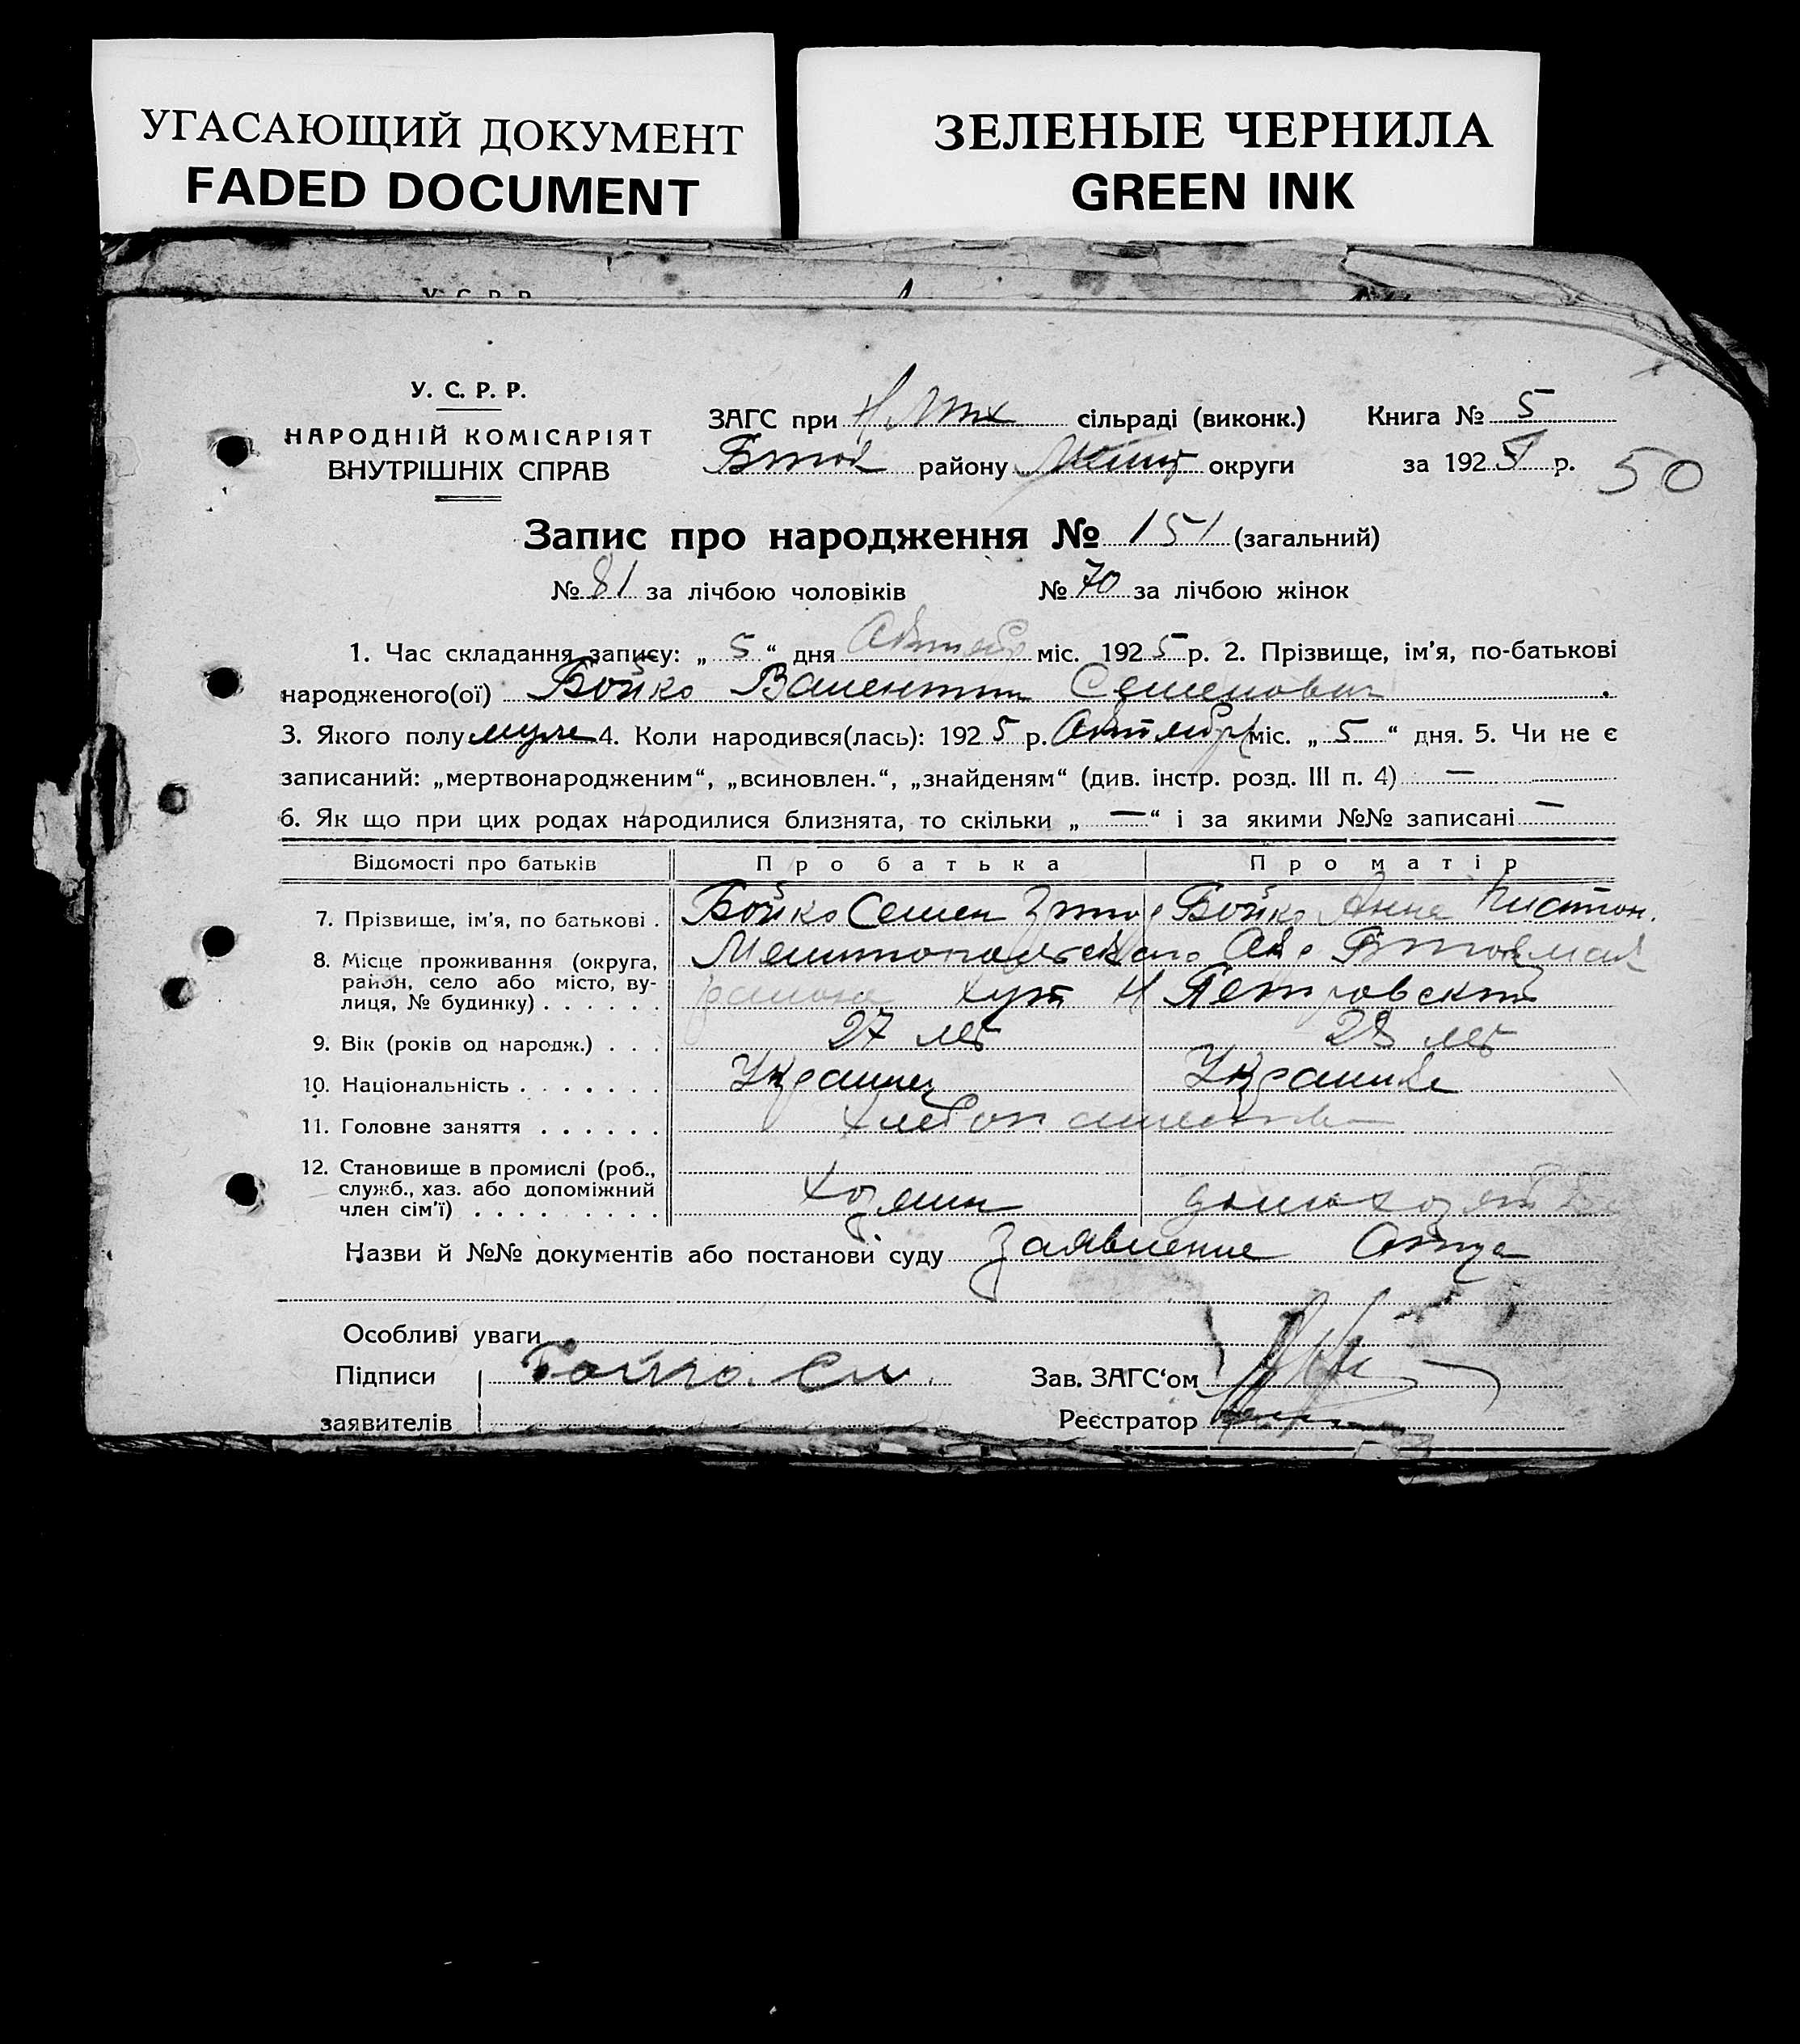 УГАСАЮЩИЙ ДОКУМЕНТ
FADED DOCUMENT
ЗЕЛЕНЫЕ ЧЕРНИЛА
GREEN INK
У. С. Р. Р.
НАРОДНІЙ КОМІСАРІЯТ
ВНУТРІШНІХ СПРАВ
ЗАГС при сільраді (виконк.)
району округи
Книга № 5
за 1925 р. 50
Запис про народження № 151 (загальний)
№ 81 за лічбою чоловіків № 70 за лічбою жінок
1. Час складання запису: „ 5 “ дня міс. 1925 р. 2. Прізвище, ім'я, по-батькові
народженого(ої) Бойко Валентин Семенович
3. Якого полу муж 4. Коли народився(лась): 1925 р. Октября міс. „ 5 “ дня. 5. Чи не є
записаний: „мертвонародженим“, „всиновлен.“, „знайденям“ (див. інстр. розд. III п. 4) —
6. Як що при цих родах народилися близнята, то скільки „ — “ і за якими №№ записані —
Відомості про батьків Про батька Про матір
7. Прізвище, ім'я, по батькові . Бойко Семен Бойко Анна
8. Місце проживання (округа, район, село або місто, вулиця, № будинку) . . . . . . Мелитопольского
района хут Н Петровский
9. Вік (років од народж.) . . . 27 лет 28 лет
10. Національність . . . . . . . Украинец Украинка
11. Головне заняття . . . . . . Хлебопашество
12. Становище в промислі (роб., служб., хаз. або допоміжний член сім'ї) . . . . . . . . . Хозяин домохозяйка
Назви й №№ документів або постанови суду Заявление Отца
Особливі уваги
Підписи Бойко. См.
заявителів
Зав. ЗАГС'ом
Реєстратор